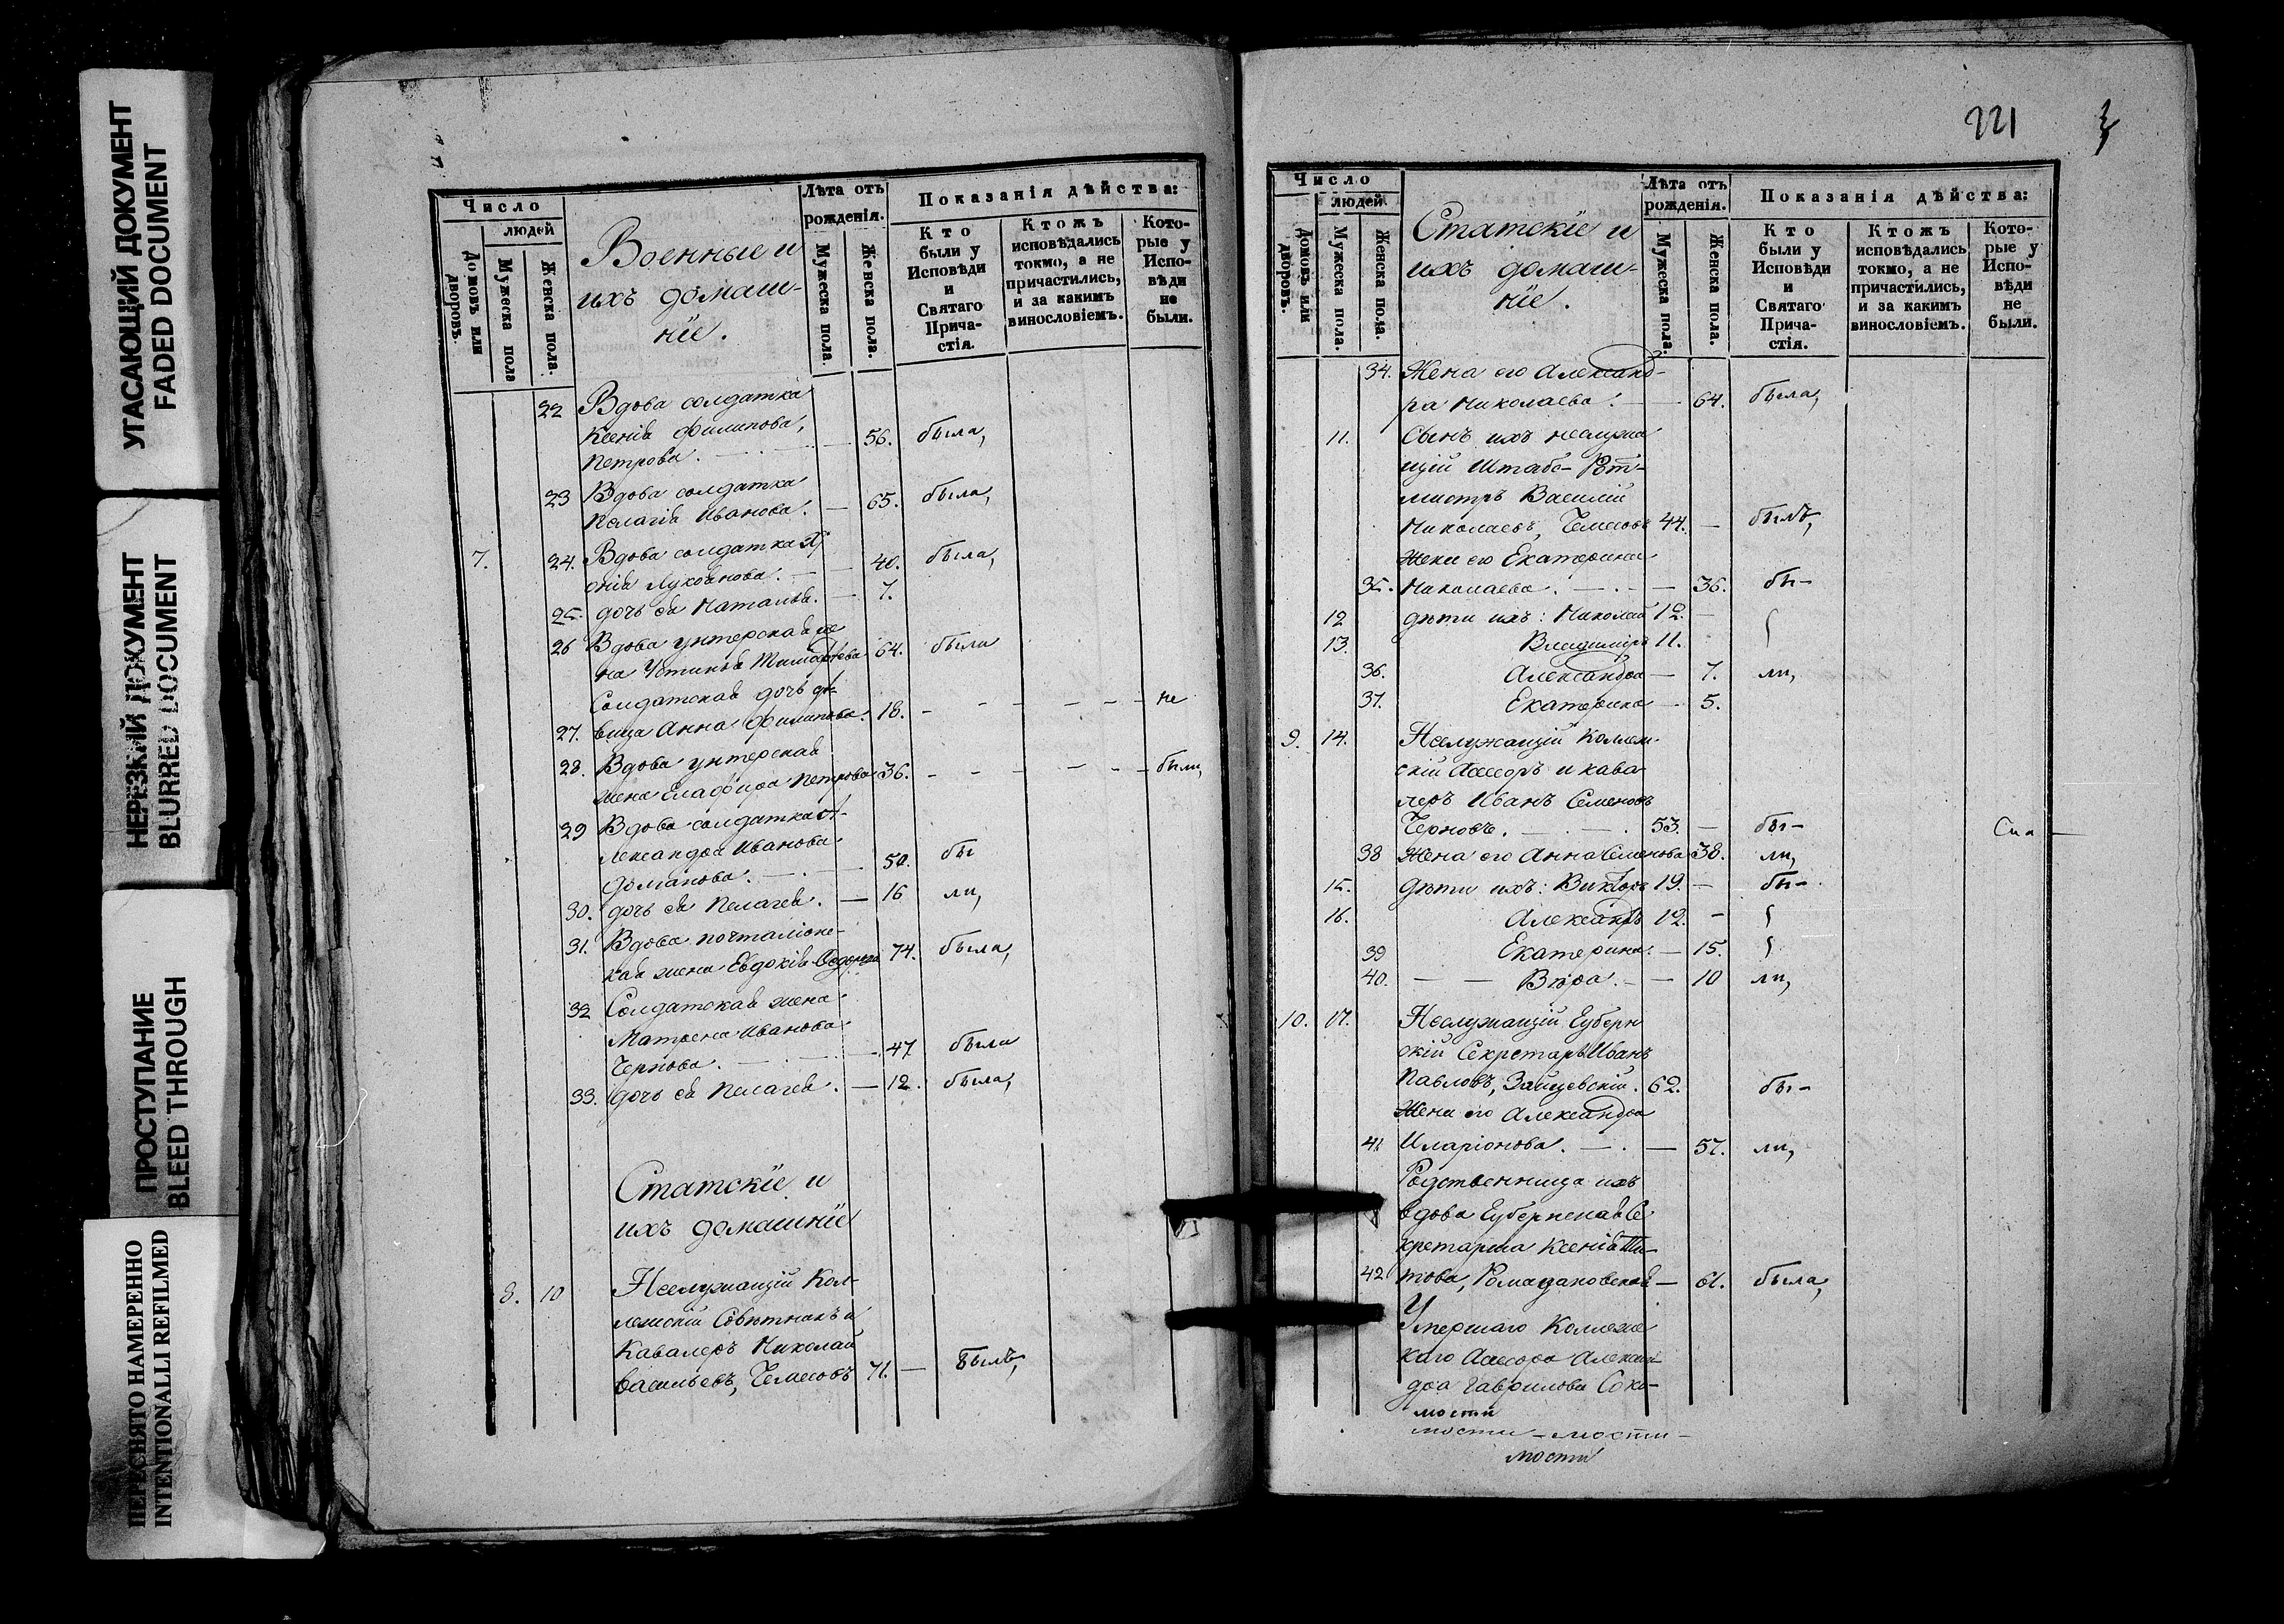 УГАСАЮЩИЙ ДОКУМЕНТ
FADED DOCUMENT
НЕРЕЗКИЙ ДОКУМЕНТ
BLURRED DOCUMENT
ПРОСТУПАНИЕ
BLEED THROUGH
ПЕРЕСНЯТО НАМЕРЕННО
INTENTIONALLI REFILMED
Число
людей
Домовъ или дворовъ.
Мужеска пола
Женска пола.
Военные и
ихъ домаш-
нїе.
Лѣта отъ
рожденія.
Мужеска пола.
Женска пола.
Показанія дѣйства:
Кто были у Исповѣди и Святаго Прича-стія.
Ктожъ исповѣдались токмо, а не причастились, и за какимъ винословіемъ.
Кото-рые у Испо-вѣди не были.
22 Вдова солдатка
Ксенія Филипова,
Петрова. — 56. была,
23 Вдова солдатка
Пелагія Иванова. — 65. была,
7. 24. Вдова солдатка
Лукоянова. — 40. была,
25. дочь ея Наталья. — 7.
26 Вдова унтерская же
на Устинья 64. была
Солдатская дочь дѣ-
27. вица Анна Филипова. 18. — — — — — не
28. Вдова унтерская
жена Глафира Петрова 36. — — — — — были,
29 Вдова солдатка А-
лександра Иванова
Доманова. — 50. бы
30. дочь ея Пелагея. — 16 ли,
31. Вдова почталіонс-
кая жена Евдокія 74. была,
32 Солдатская жена
Матрена Иванова
Чернова. — 47 была
33. дочь ея Пелагея. — 12. была,
Статскїе и
ихъ домашнїе
8. 10 Неслужащій Кол-
лежскій Совѣтникъ и
Кавалеръ Николай
Васильевъ, Чемесовъ 71. — былъ,
221
Число
людей
Домовъ или дворовъ.
Мужеска пола.
Женска пола.
Статскїе и
ихъ домаш-
нїе.
Лѣта отъ
рожденія.
Мужеска пола.
Женска пола.
Показанія дѣйства:
Кто были у Исповѣди и Святаго Прича-стія.
Ктожъ исповѣдались токмо, а не причастились, и за какимъ винословіемъ.
Кото-рые у Испо-вѣди не были.
34. Жена его Александ-
ра Николаева. — 64. была,
11. Сынъ ихъ неслужа
щій Штабс-Рот-
мистръ Василій
Николаевъ, Чемесовъ 44. — былъ,
Жена его Екатерина
35. Николаева. — 36. бы-
12 дѣти ихъ: Николай 12. —
13. Владиміръ 11.
36. Александра — 7. ли,
37. Екатерина — 5.
9. 14. Неслужащій Коллеж-
скій Ассесоръ и кава
леръ Иванъ Семеновъ
Черновъ. — 53. — бы-
38 Жена его Анна Семенова 38. ли,
15. дѣти ихъ: Викторъ 19. — бы-
16. Александръ 12. —
39 Екатерина. — 15.
40. — — Вѣра. — 10 ли,
10. 17. Неслужащій Губерн
скій Секретарь Иванъ
Павловъ, Зайцевскій. 62. бы-
Жена его Александра
41 Иларіонова. — 57. ли,
Родственница ихъ
вдова Губернская Се
кретарша Ксенія Ти-
42 това, Ромадановская — 61. была,
Умершаго Коллежс
каго Ассесора Алексан-
дра Гаврилова Соко-
мости
мости — мости —
мости